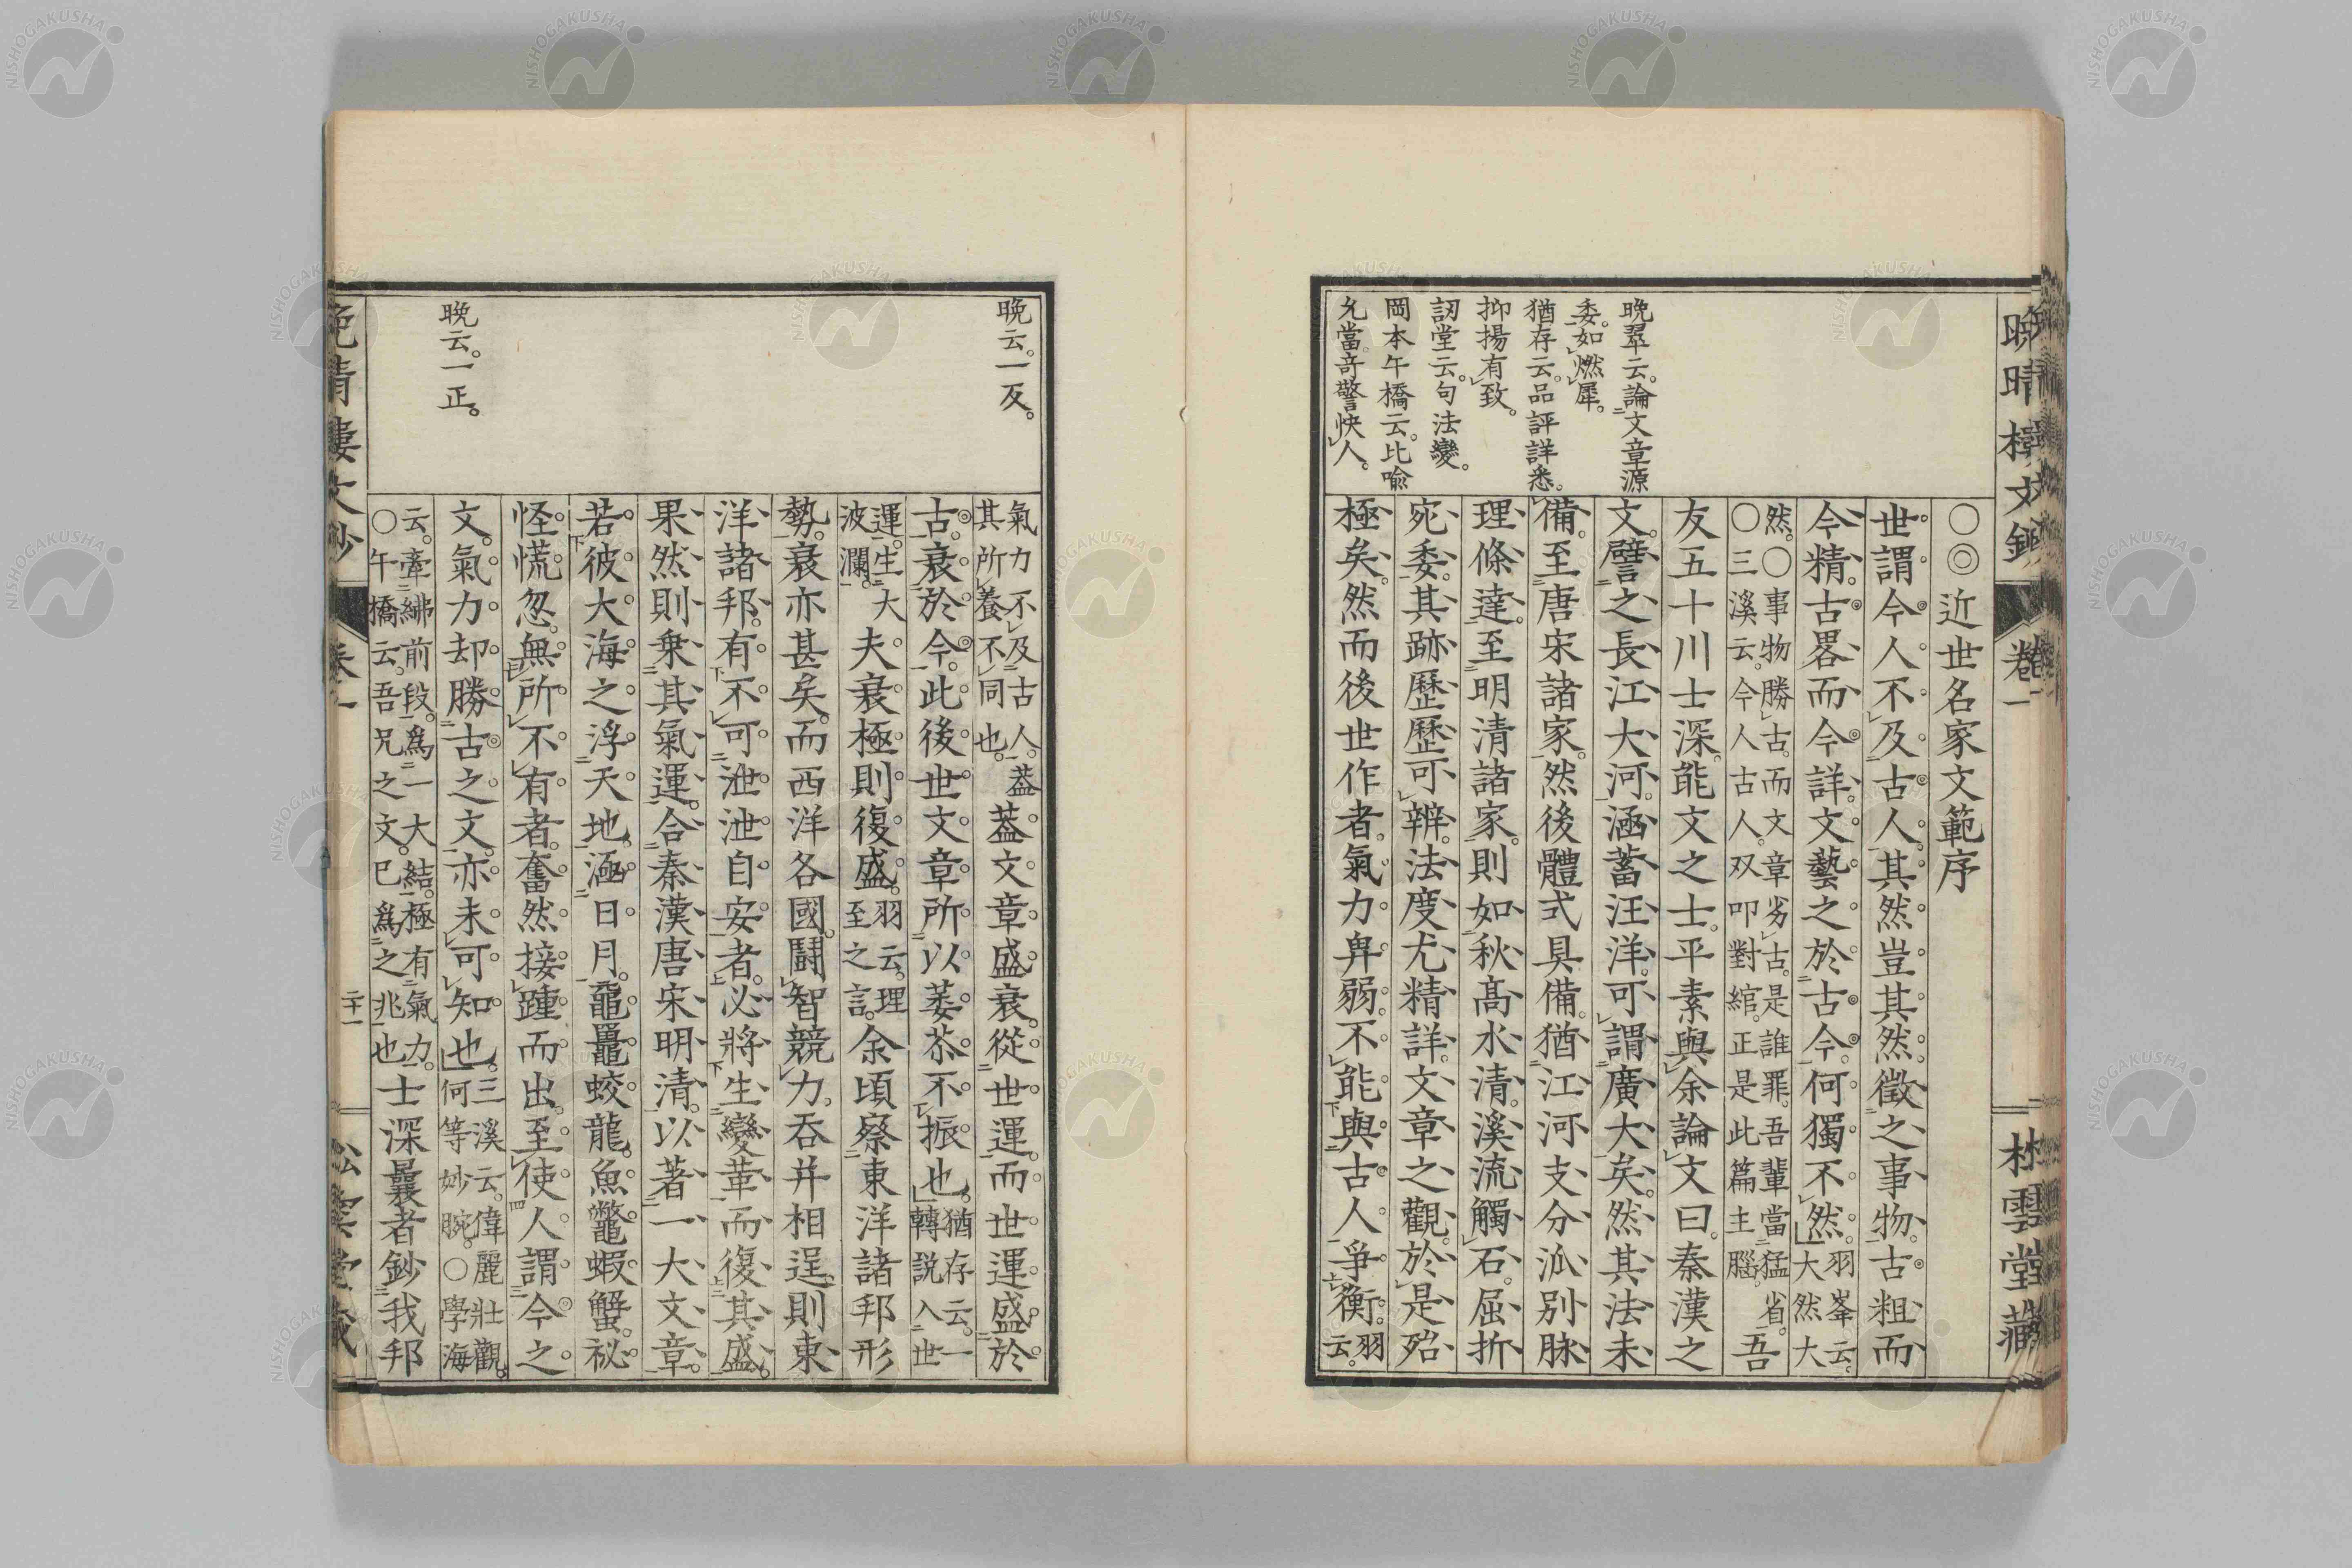 晩翠云。論文章源
委。如燃犀。
猶存云。品評詳悉。
抑揚有致。
訒堂云。句法變。
岡本午橋云。比喩
允當竒警快人。
○◎近世名家文範序
世謂今人不及古人。其然豈其然。徵之事物。古粗而
今精。古畧而今詳。文藝之於古今。何獨不然。羽峯云。大然大
然。○事物勝古。而文章劣古。是誰罪。吾輩當猛省。○三溪云。今人古人。双叩對綰。正是此篇主腦。吾
友五十川士深。能文之士。平素與余論文曰。秦漢之
文。譬之長江大河。涵蓄汪洋。可謂廣大矣。然其法未
備。至唐宋諸家。然後體式具備。猶江河支分派別脉
理條達。至明清諸家。則如秋髙水清。溪流觸石。屈折
宛委。其跡歷歷可辨。法度尤精詳。文章之觀。於是殆
極矣。然而後世作者。氣力卑弱。不能與古人爭衡。羽云。
晩云。一反。
晩云。一正。
氣力不及古人。葢其所養不同也。葢文章盛衰。從世運。而世運盛於
古。衰於今。此後世文章所以萎苶不振也。猶存云。一轉説入世
運。生大波瀾。夫衰極則復盛。羽云。理至之言。余頃察東洋諸邦形
勢。衰亦甚矣。而西洋各國。鬪智競力。吞并相逞。則東
洋諸邦。有不可泄泄自安者。必將生變革而復其盛。
果然則乗其氣運。合秦漢唐宋明清。以著一大文章。
若彼大海之浮天地。涵日月。黿鼉蛟龍。魚鼈蝦蟹。祕
怪慌忽。無所不有者。奮然接踵而出。至使人謂今之
文。氣力却勝古之文。亦未可知也。三溪云。偉麗壯觀。何等妙腕。○學海
云。牽紼前段。爲一大結。極有氣力。○午橋云。吾兄之文。已爲之兆也。士深曩者鈔我邦
晩晴樓文鈔
卷一
二十一